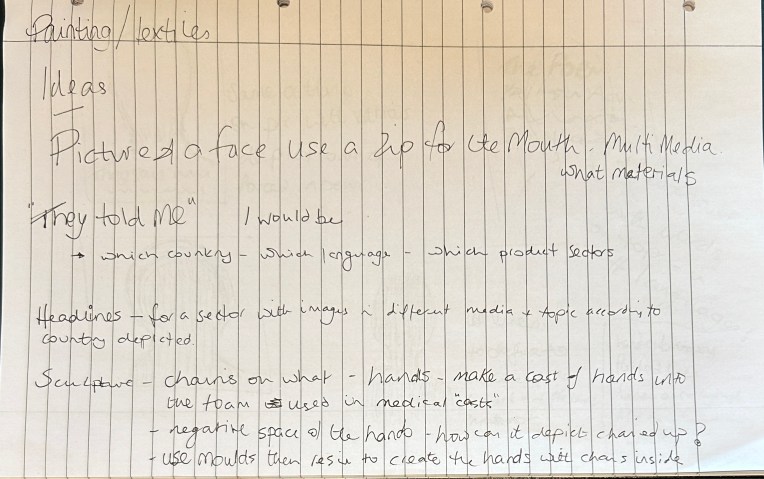 Painting/textiles
Ideas
Picture of a face use a zip for the Mouth. Multi Media.
what materials
"They told me" I would be
→ which country - which language - which product sectors
Headlines - for a sector with images in different media & topic according to
country depicted.
Sculpture - chains on what - hands - make a cast of hands into
the foam used in medical "casts"
- negative space of the hands - how can it depict chained up?
- use moulds then resin to create the hands with chains inside